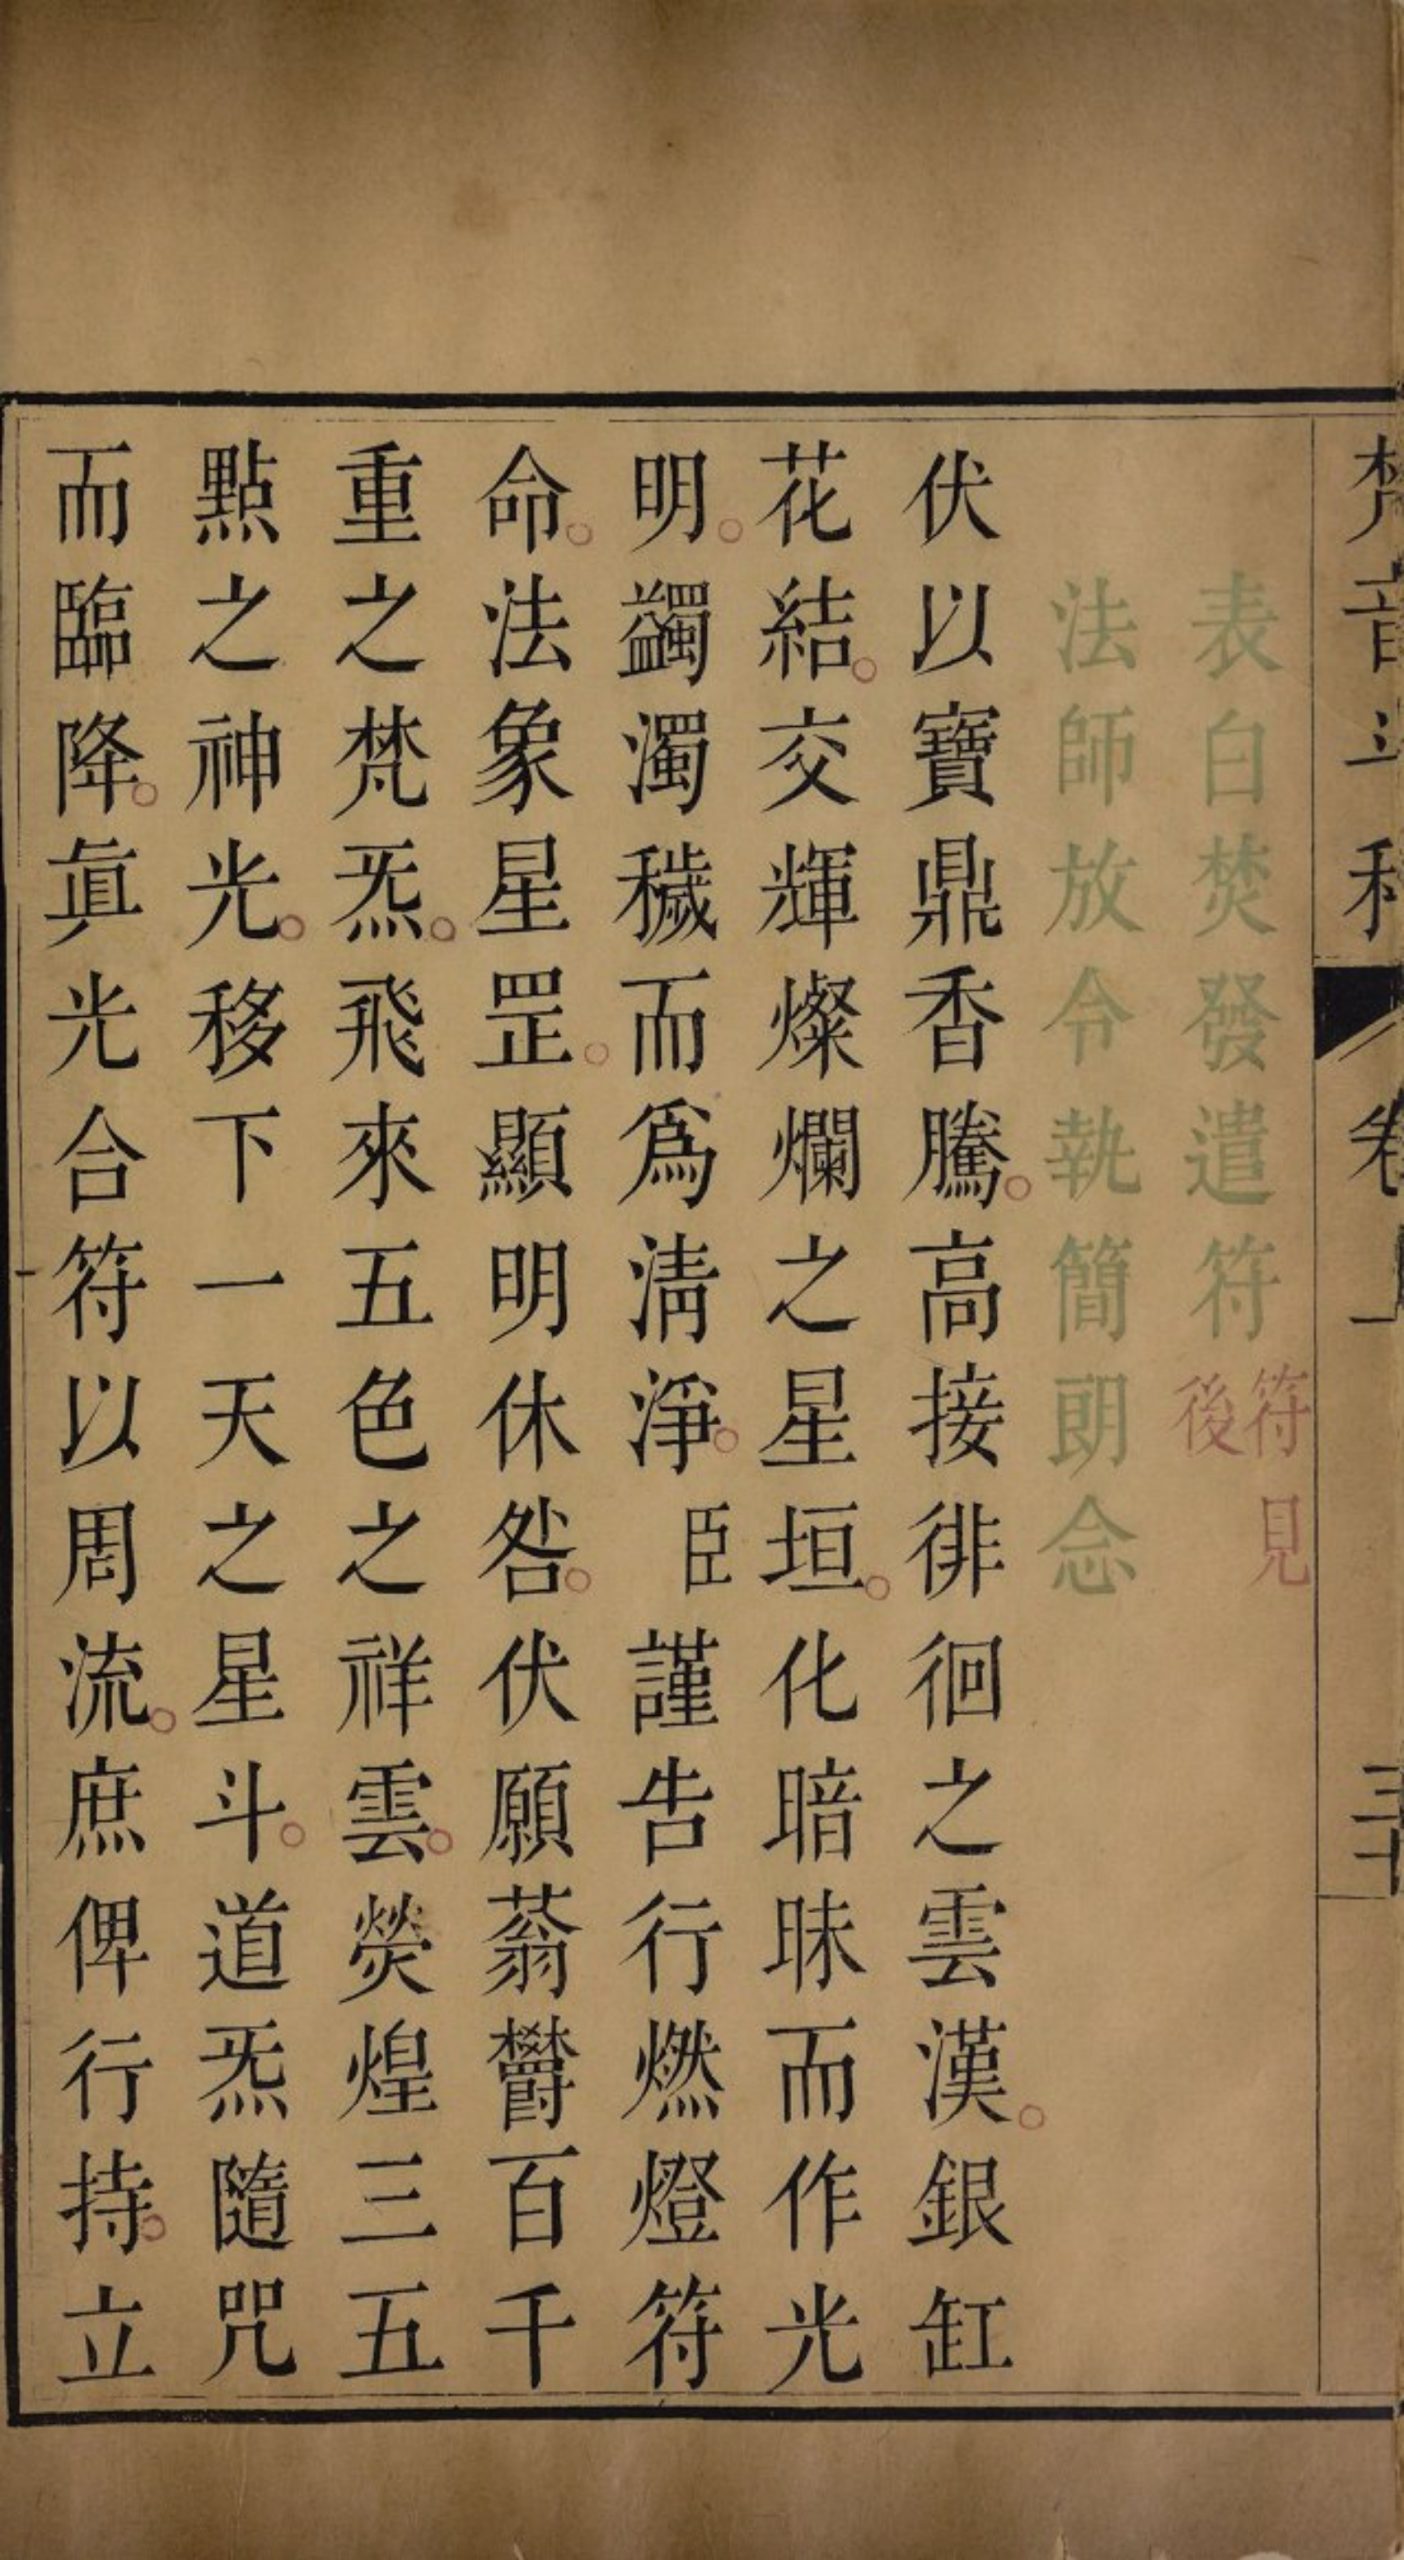 梵音斗科 卷 一 三十
表白焚發遣符符見後
法師放令執簡朗念
伏以寶鼎香騰。高接徘徊之雲漢。銀缸
花結。交輝燦爛之星垣。化暗昧而作光
明。蠲濁穢而爲淸淨。臣謹告行燃燈符
命。法象星罡。顯明休咎。伏願蓊欝百千
重之梵炁。飛來五色之祥雲。熒煌三五
點之神光。移下一天之星斗。道炁隨咒
而臨降。眞光合符以周流。庶俾行持。立